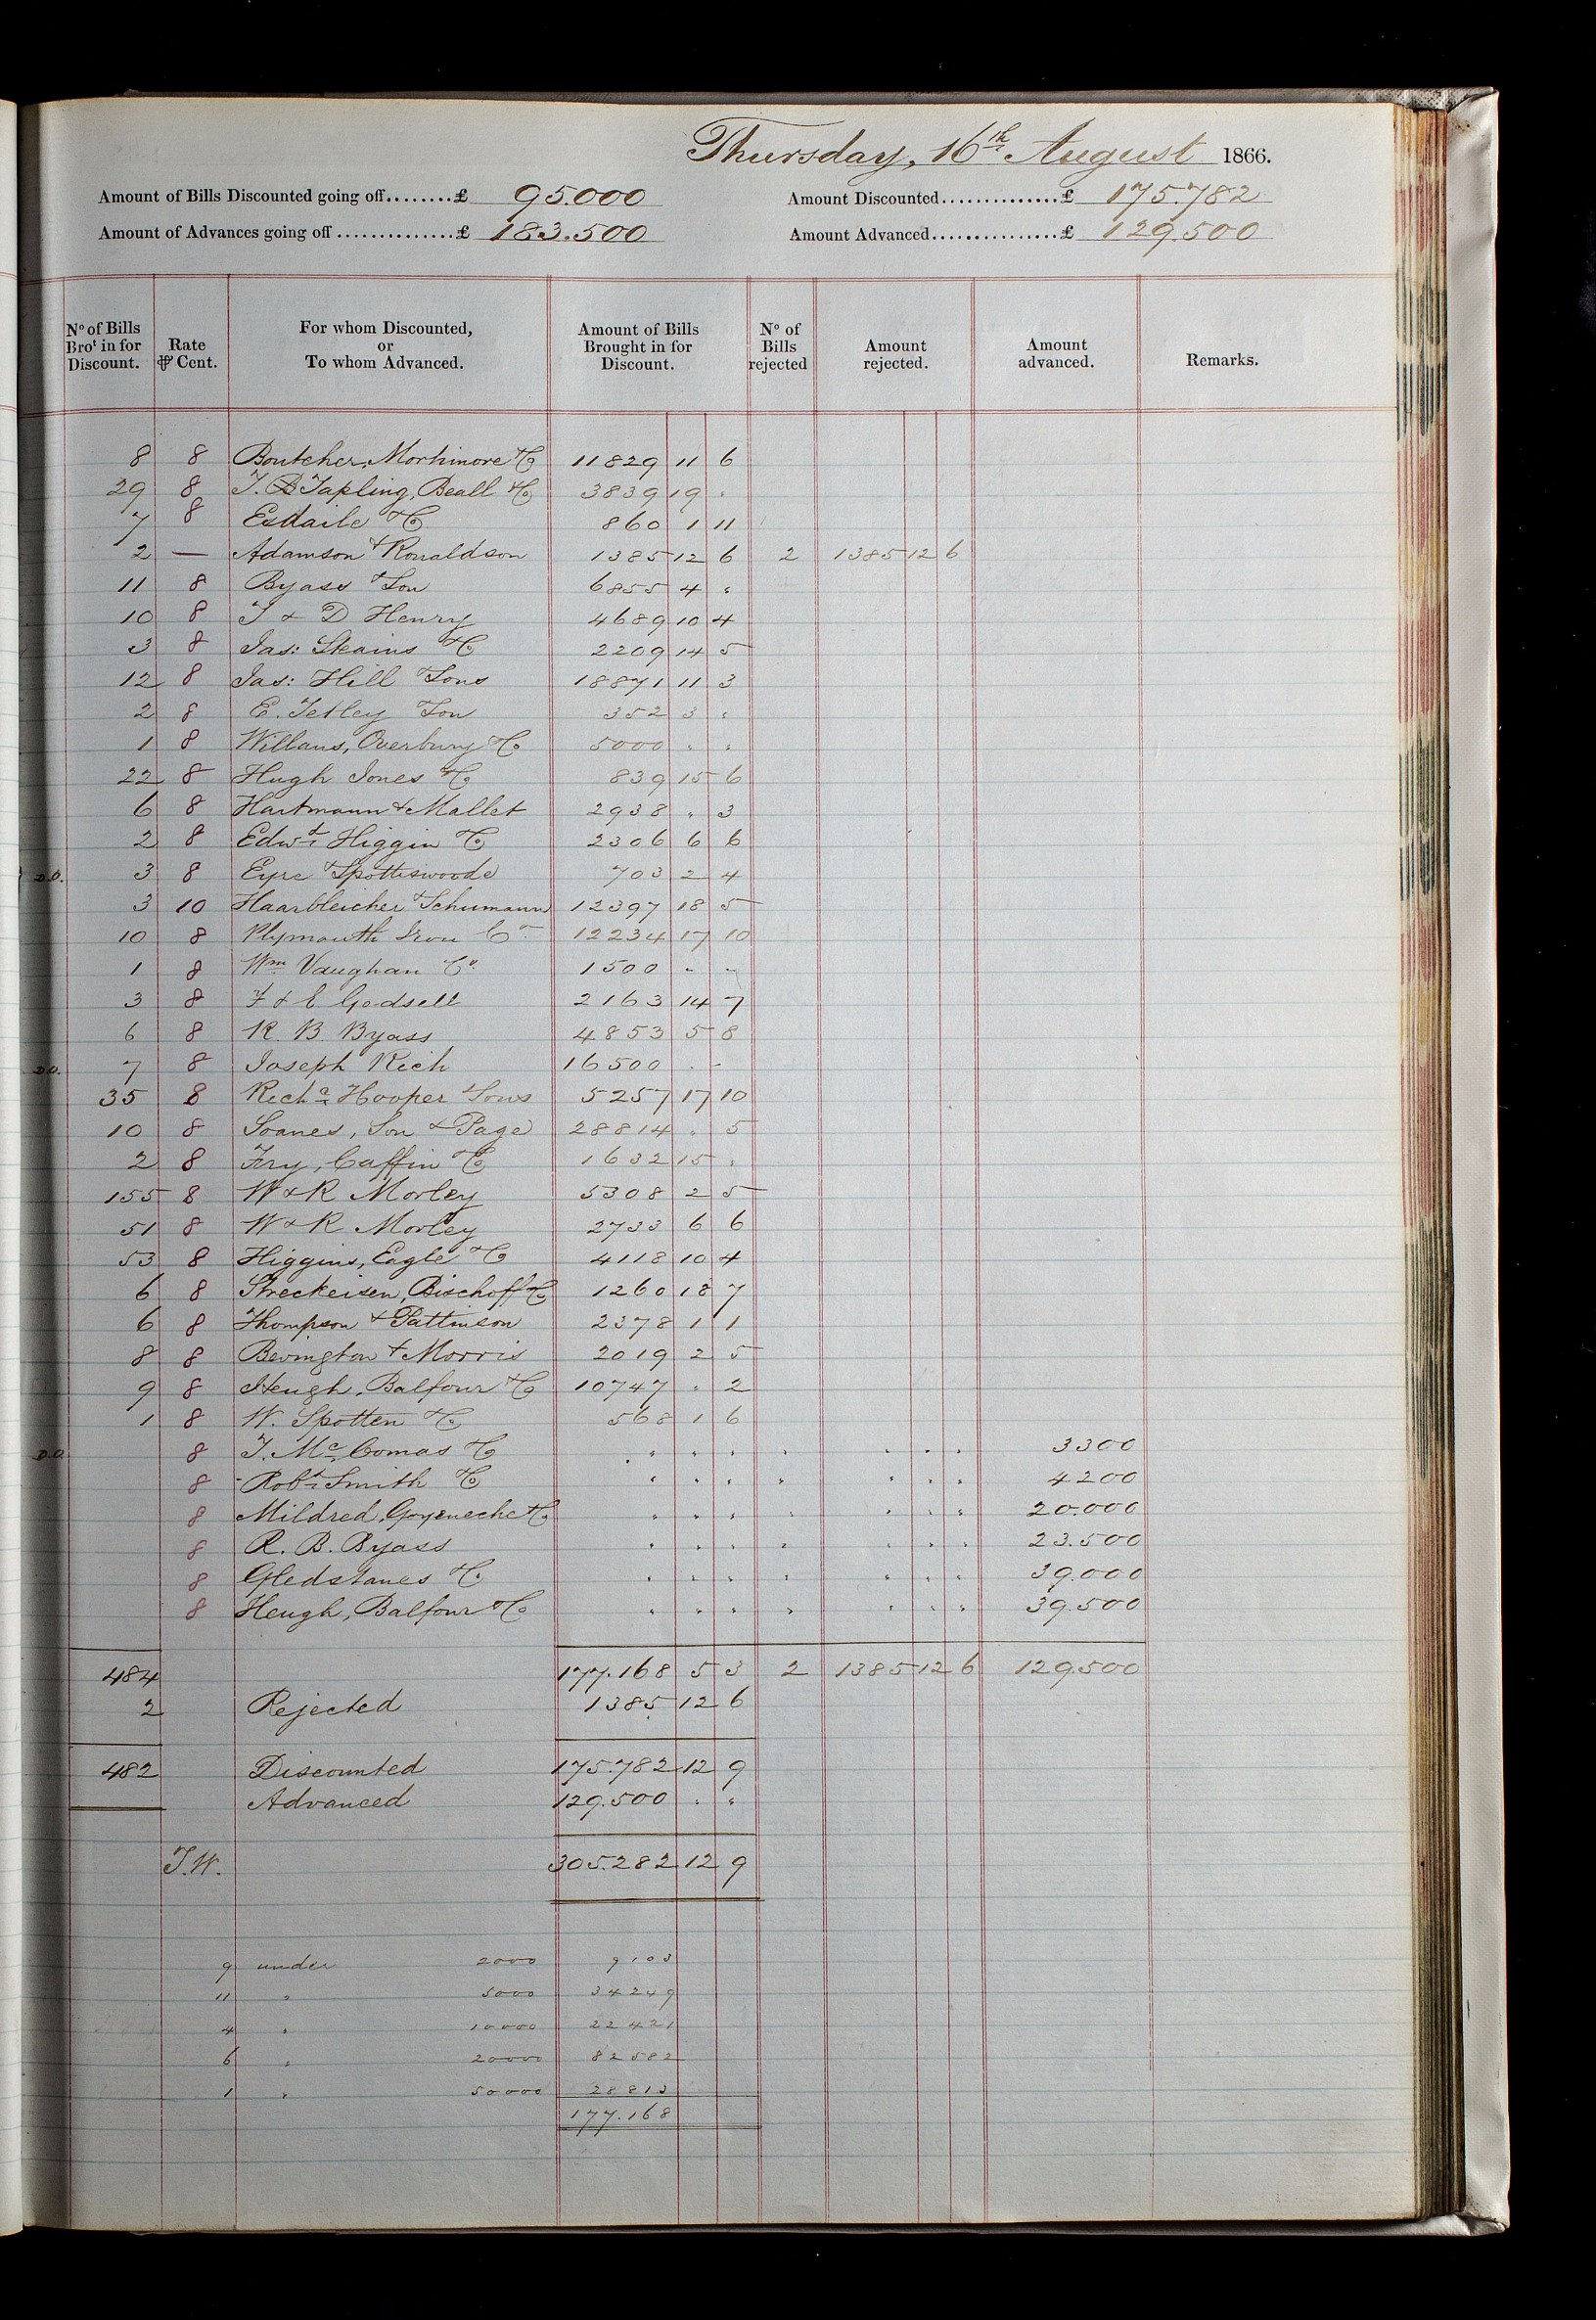 Thursday, 16th August 1866.
Amount of Bills Discounted going off........£ 95.000 Amount Discounted..............£ 175.782
Amount of Advances going off..............£ 183.500 Amount Advanced................£ 129.500
No of Bills Brot in for Discount. Rate ⅌ Cent. For whom Discounted, or To whom Advanced. Amount of Bills Brought in for Discount. No of Bills rejected Amount rejected. Amount advanced. Remarks.
8 8 Boutcher, Mortimore & Co 11829 11 6
29 8 T. B Tapling, Beall & Co 3839 19 "
7 8 Esdaile & Co 860 1 11
2 — Adamson & Ronaldson 1385 12 6 2 1385 12 6
11 8 Byass & Son 6855 4 "
10 8 T & D Henry 4689 10 4
3 8 Jas: Skains & Co 2209 14 5
12 8 Jas: Hill & Sons 18871 11 3
2 8 E. Tetley & Son 352 3 "
1 8 Willans, Overbury & Co 5000 " "
22 8 Hugh Jones & Co 839 15 6
6 8 Hartmann & Mallet 2938 " 3
2 8 Edwd Higgin & Co 2306 6 6
D.O. 3 8 Eyre & Spottiswoode 703 2 4
3 10 Haarbleicher & Schumann 12397 18 5
10 8 Plymouth Iron Co 12234 17 10
1 8 Wm Vaughan & Co 1500 - -
3 8 F & C Godsell 2163 14 7
6 8 R. B. Byass 4853 5 8
D.O. 7 8 Joseph Rich 16500 - -
35 8 Richd Hooper & Sons 5257 17 10
10 8 Soanes, Son & Page 28814 " 5
2 8 Fry, Caffin & Co 1632 15 "
155 8 W & R Morley 5308 2 5
51 8 W & R Morley 2733 6 6
53 8 Higgins, Eagle & Co 4118 10 4
6 8 Streckeisen, Bischoff & Co 1260 18 7
6 8 Thompson & Pattinson 2378 1 1
8 8 Bevington & Morris 2019 2 5
9 8 Heugh, Balfour & Co 10747 " 2
1 8 W. Spotten & Co 568 1 6
D.O. 8 T. McComas & Co " " " " " " " 3300
8 Robt Smith & Co " " " " " " " 4200
8 Mildred, Goyeneche & Co " " " " " " " 20.000
8 R. B. Byass " " " " " " " 23.500
8 Gledstanes & Co " " " " " " " 39.000
8 Heugh, Balfour & Co " " " " " " " 39.500
484 177.168 5 3 2 1385 12 6 129.500
2 Rejected 1385 12 6
482 Discounted 175.782 12 9
Advanced 129.500 " "
T.W. 305.282 12 9
9 under 2000 9103
11 " 5000 34249
4 " 10000 22421
6 " 20000 82582
1 " 50000 28813
177.168